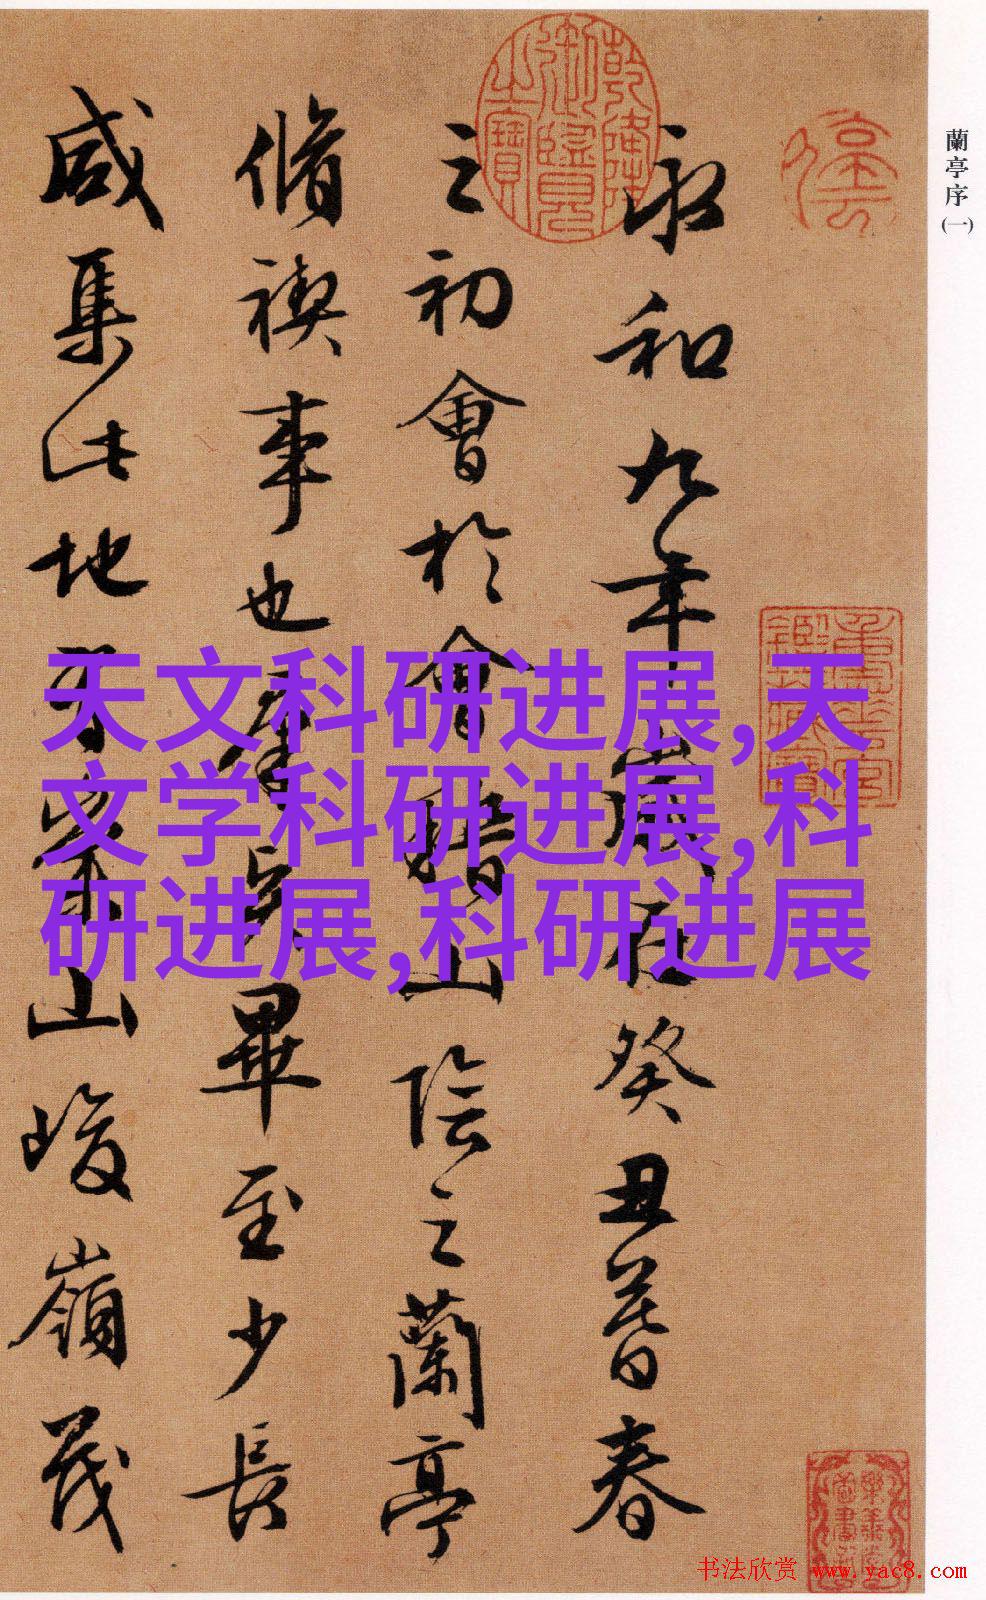 蘭亭序(一)
永和九年歲在癸丑暮春
之初會於會稽山陰之蘭亭
脩禊事也羣賢畢至少長
咸集此地有崇山峻嶺茂
乾隆御覽之寶
天文科研进展,天
文学科研进展,科
研进展,科研进展
书法欣赏 www.yac8.com